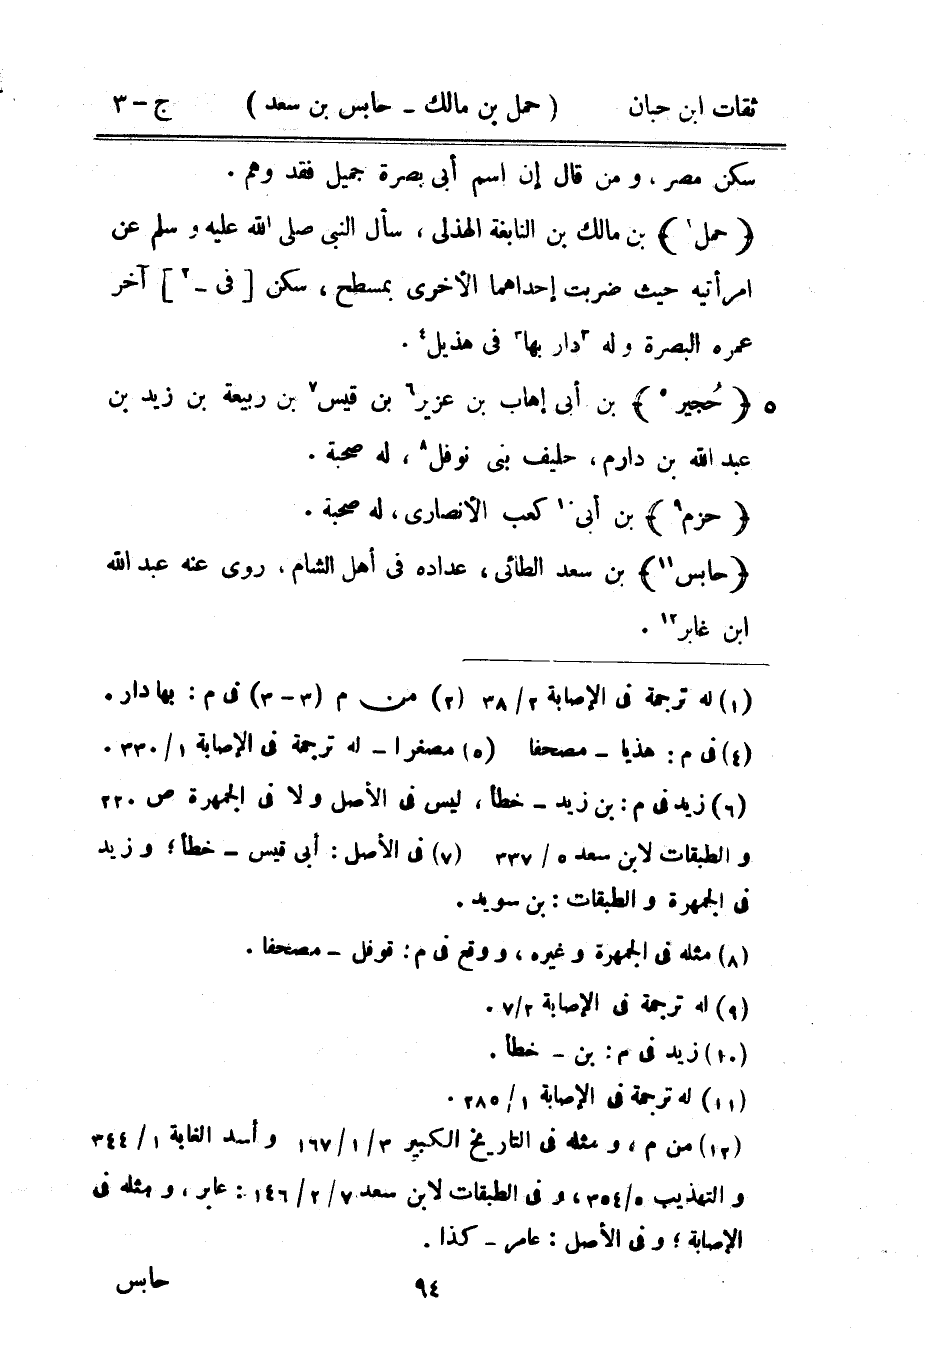 ثقات ابن حبان ( حمل بن مالك - حابس بن سعد ) ج - ٣
سكن مصر ، و من قال إن اسم أبى بصرة جميل فقد وهم .
﴿ حمل١ ﴾ بن مالك بن النابغة الهذلى ، سأل النبى صلى الله عليه و سلم عن
امرأتيه حيث ضربت إحداهما الأخرى بمسطح ، سكن [ فى - ٢ ] آخر
عمره البصرة و له ٣دار بها٣ فى هذيل٤ .
٥ ﴿ حُجير٥ ﴾ بن أبى إهاب بن عزير٦ بن قيس٧ بن ربيعة بن زيد بن
عبد الله بن دارم ، حليف بنى نوفل٨ ، له صحبة .
﴿ حزم٩ ﴾ بن أبى١٠ كعب الأنصارى ، له صحبة .
﴿ حابس١١ ﴾ بن سعد الطائى ، عداده فى أهل الشام ، روى عنه عبد الله
ابن غابر١٢ .
(١) له ترجمة فى الإصابة ٢/ ٣٨ (٢) من م (٣-٣) فى م : بها دار .
(٤) فى م : هذيا - مصحفا (٥) مصغرا - له ترجمة فى الإصابة ١/ ٣٣٠ .
(٦) زيد فى م : بن زيد - خطأ ، ليس فى الأصل و لا فى الجمهرة ص ٢٢٠
و الطبقات لابن سعد ٥/ ٣٣٧ (٧) فى الأصل : أبى قيس - خطأ ؛ و زيد
فى الجمهرة و الطبقات : بن سويد .
(٨) مثله فى الجمهرة و غيره ، و وقع فى م : قوفل - مصحفا .
(٩) له ترجمة فى الإصابة ٢/ ٧ .
(١٠) زيد فى م : بن - خطأ .
(١١) له ترجمة فى الإصابة ١/ ٢٨٥ .
(١٢) من م ، و مثله فى التاريخ الكبير ٣/ ١/ ١٦٧ و أسد الغابة ١/ ٣٤٤
و التهذيب ٥/ ٣٥٤ ، و فى الطبقات لابن سعد ٧/ ٢/ ١٤٦ : عابر ، و مثله فى
الإصابة ؛ و فى الأصل : عامر - كذا .
٩٤ حابس